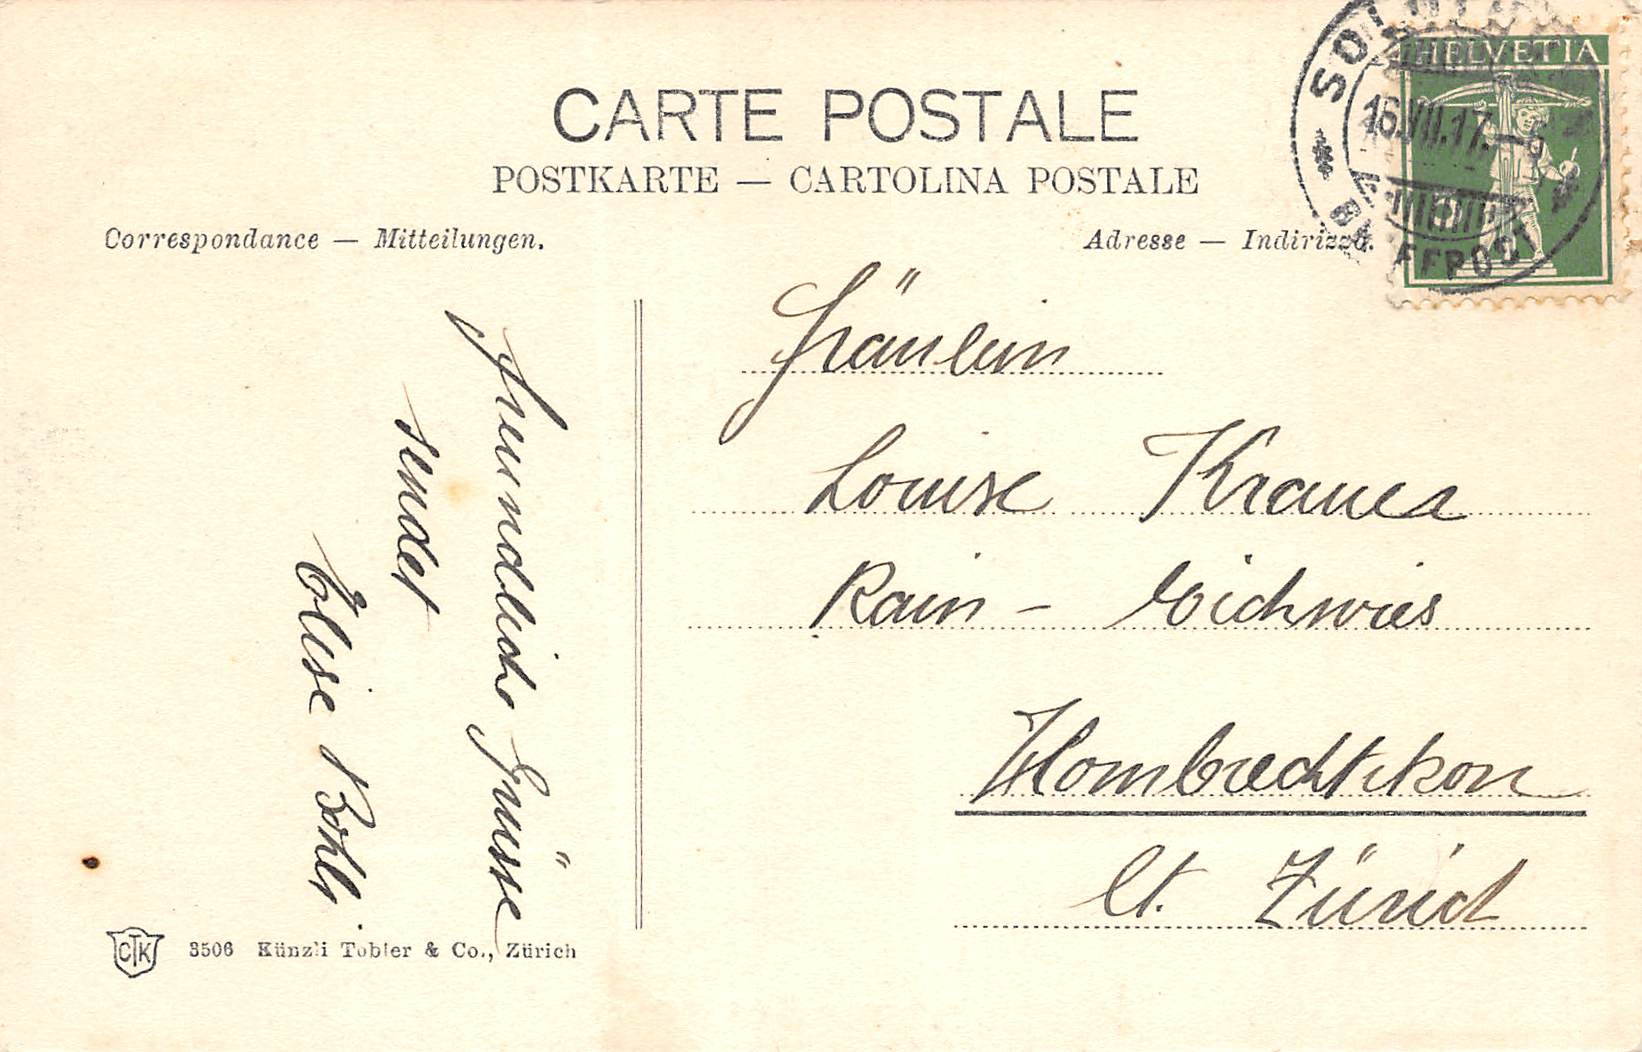 CARTE POSTALE
POSTKARTE — CARTOLINA POSTALE
Correspondance — Mitteilungen.
Adresse — Indirizzo.
HELVETIA
16.VII.17.
BRIEFPOST
Freundliche Grüsse
sendet
Elise
Fräulein
Louise
Rain - Eichwies
Hombrechtikon
Ct. Zürich
CTK
3506 Künzli Tobler & Co., Zürich